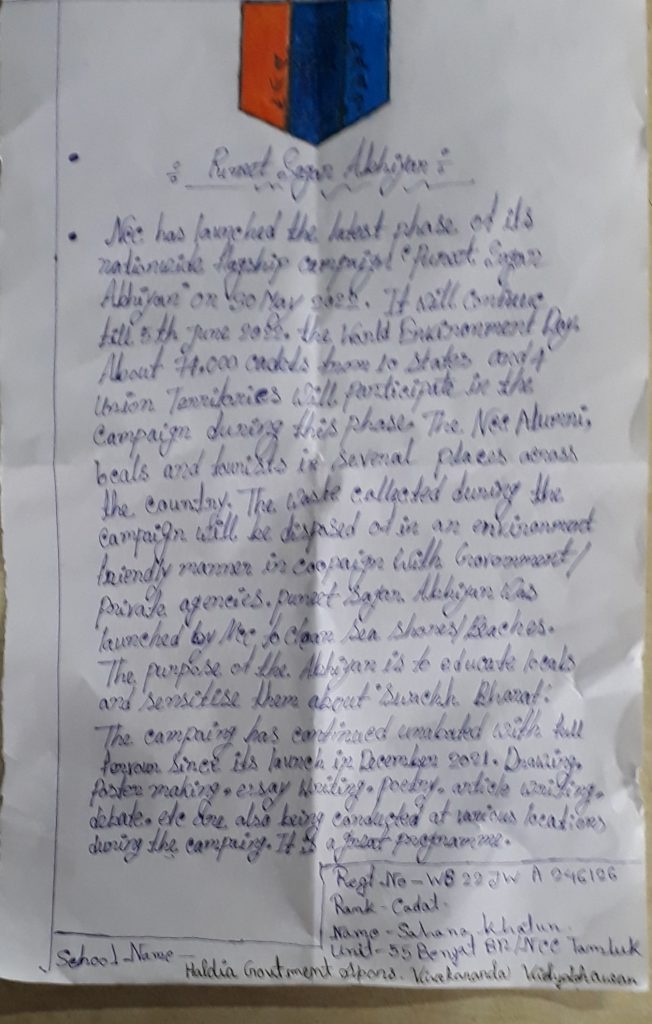 ÷ Puneet Sagar Abhiyan ÷
Ncc has launched the latest phase of its
nationwide flagship campaign "Puneet Sagar
Abhiyan" on 30 May 2022. It will continue
till 5th June 2022. the World Environment Day.
About 74,000 cadets from 10 States and 4
Union Territories will participate in the
Campaign during this phase. The Ncc Alumni,
locals and tourists in several places across
the country. The waste collected during the
campaign will be disposed of in an environment
friendly manner in with Government/
private agencies. puneet Sagar Abhiyan was
launched by Ncc to clean Sea Shores/Beaches.
The purpose of the Abhiyan is to educate locals
and sensitise them about 'Swachh Bharat'.
The campaing has continued unabated with full
since its launch in December 2021. Drawing,
Poster making, essay writing, poetry, article writing,
debate, etc are also being conducted at various locations
during the campaing. It is a great programme.
Regt. No - WB 22 JW A 246126
Rank - Cadat.
Name - Sahana Khatun.
Unit - 55 Bengal BN/NCC Tamluk
School Name -
Haldia Govtment Spons. Vivekananda Vidyabhawan